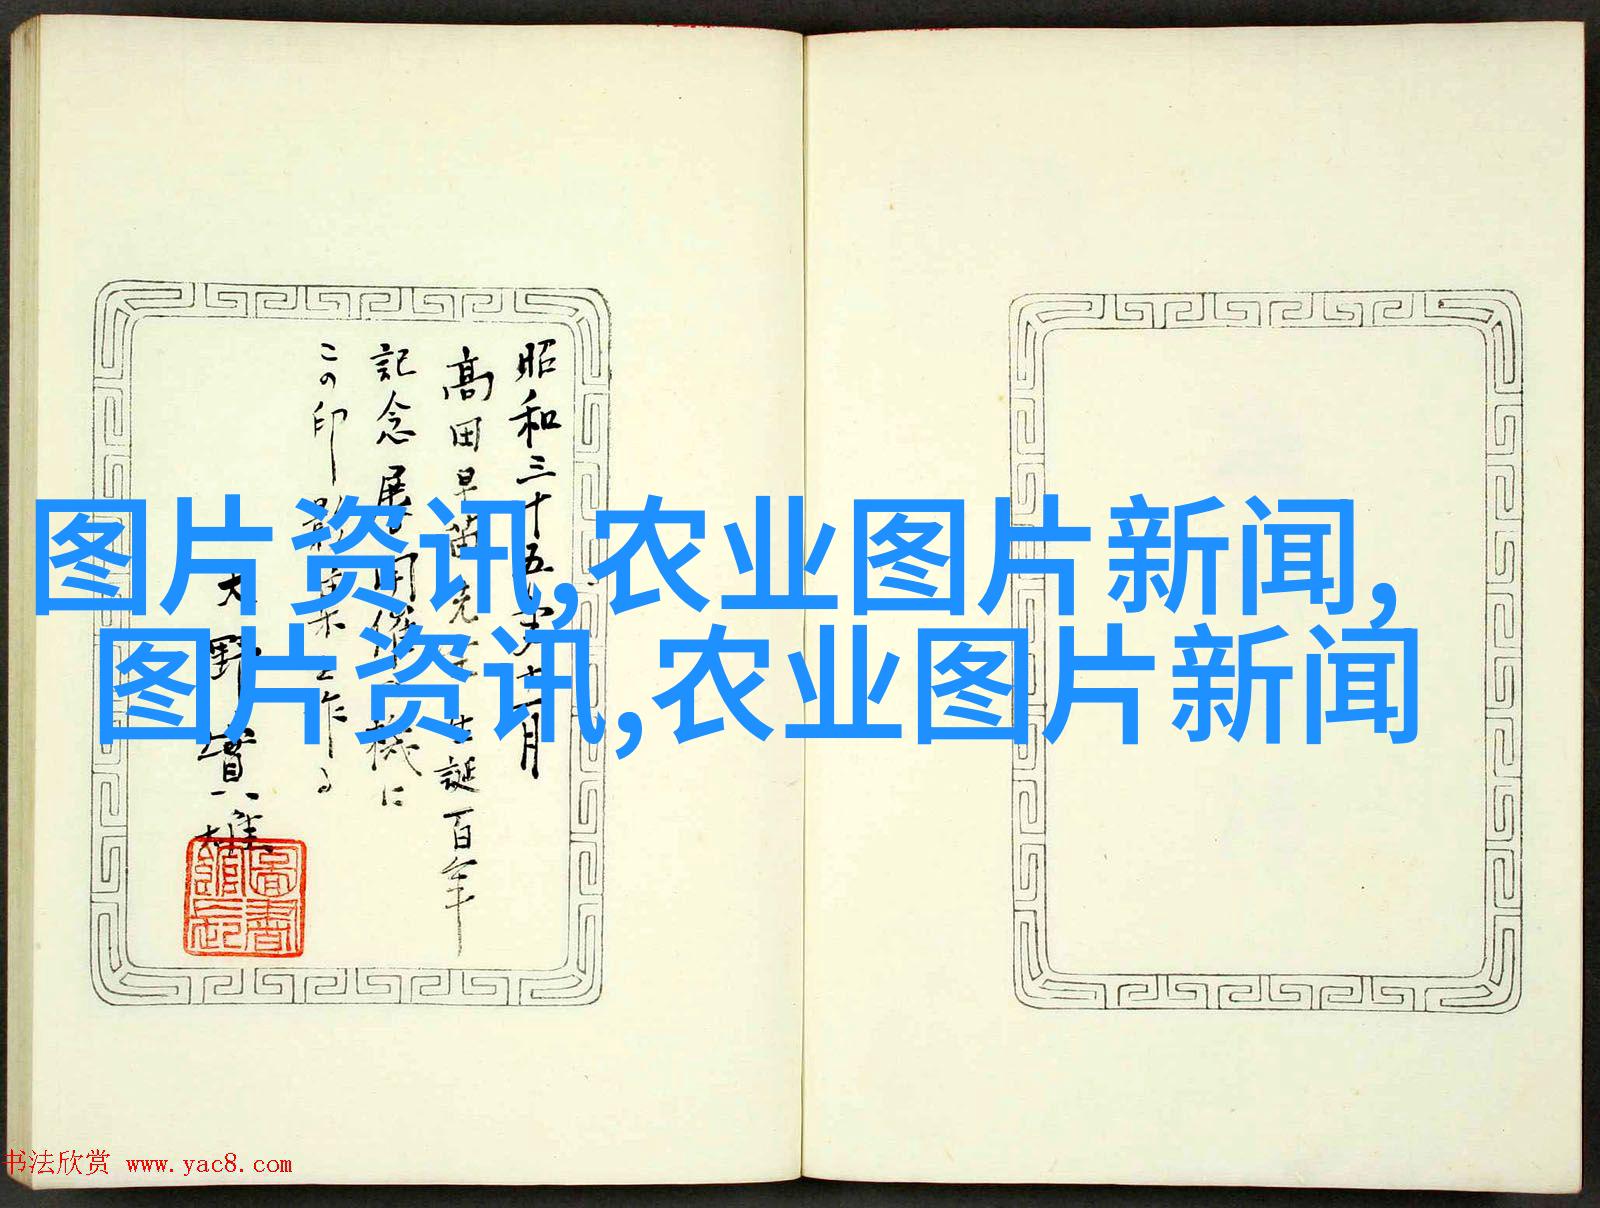 昭和三十五年十一月
高田早苗先生生誕百年
記念展開催の機に
この印影集を作る
大野實雄
圖書館長
图片资讯,农业图片新闻,
图片资讯,农业图片新闻
书法欣赏 www.yac8.com